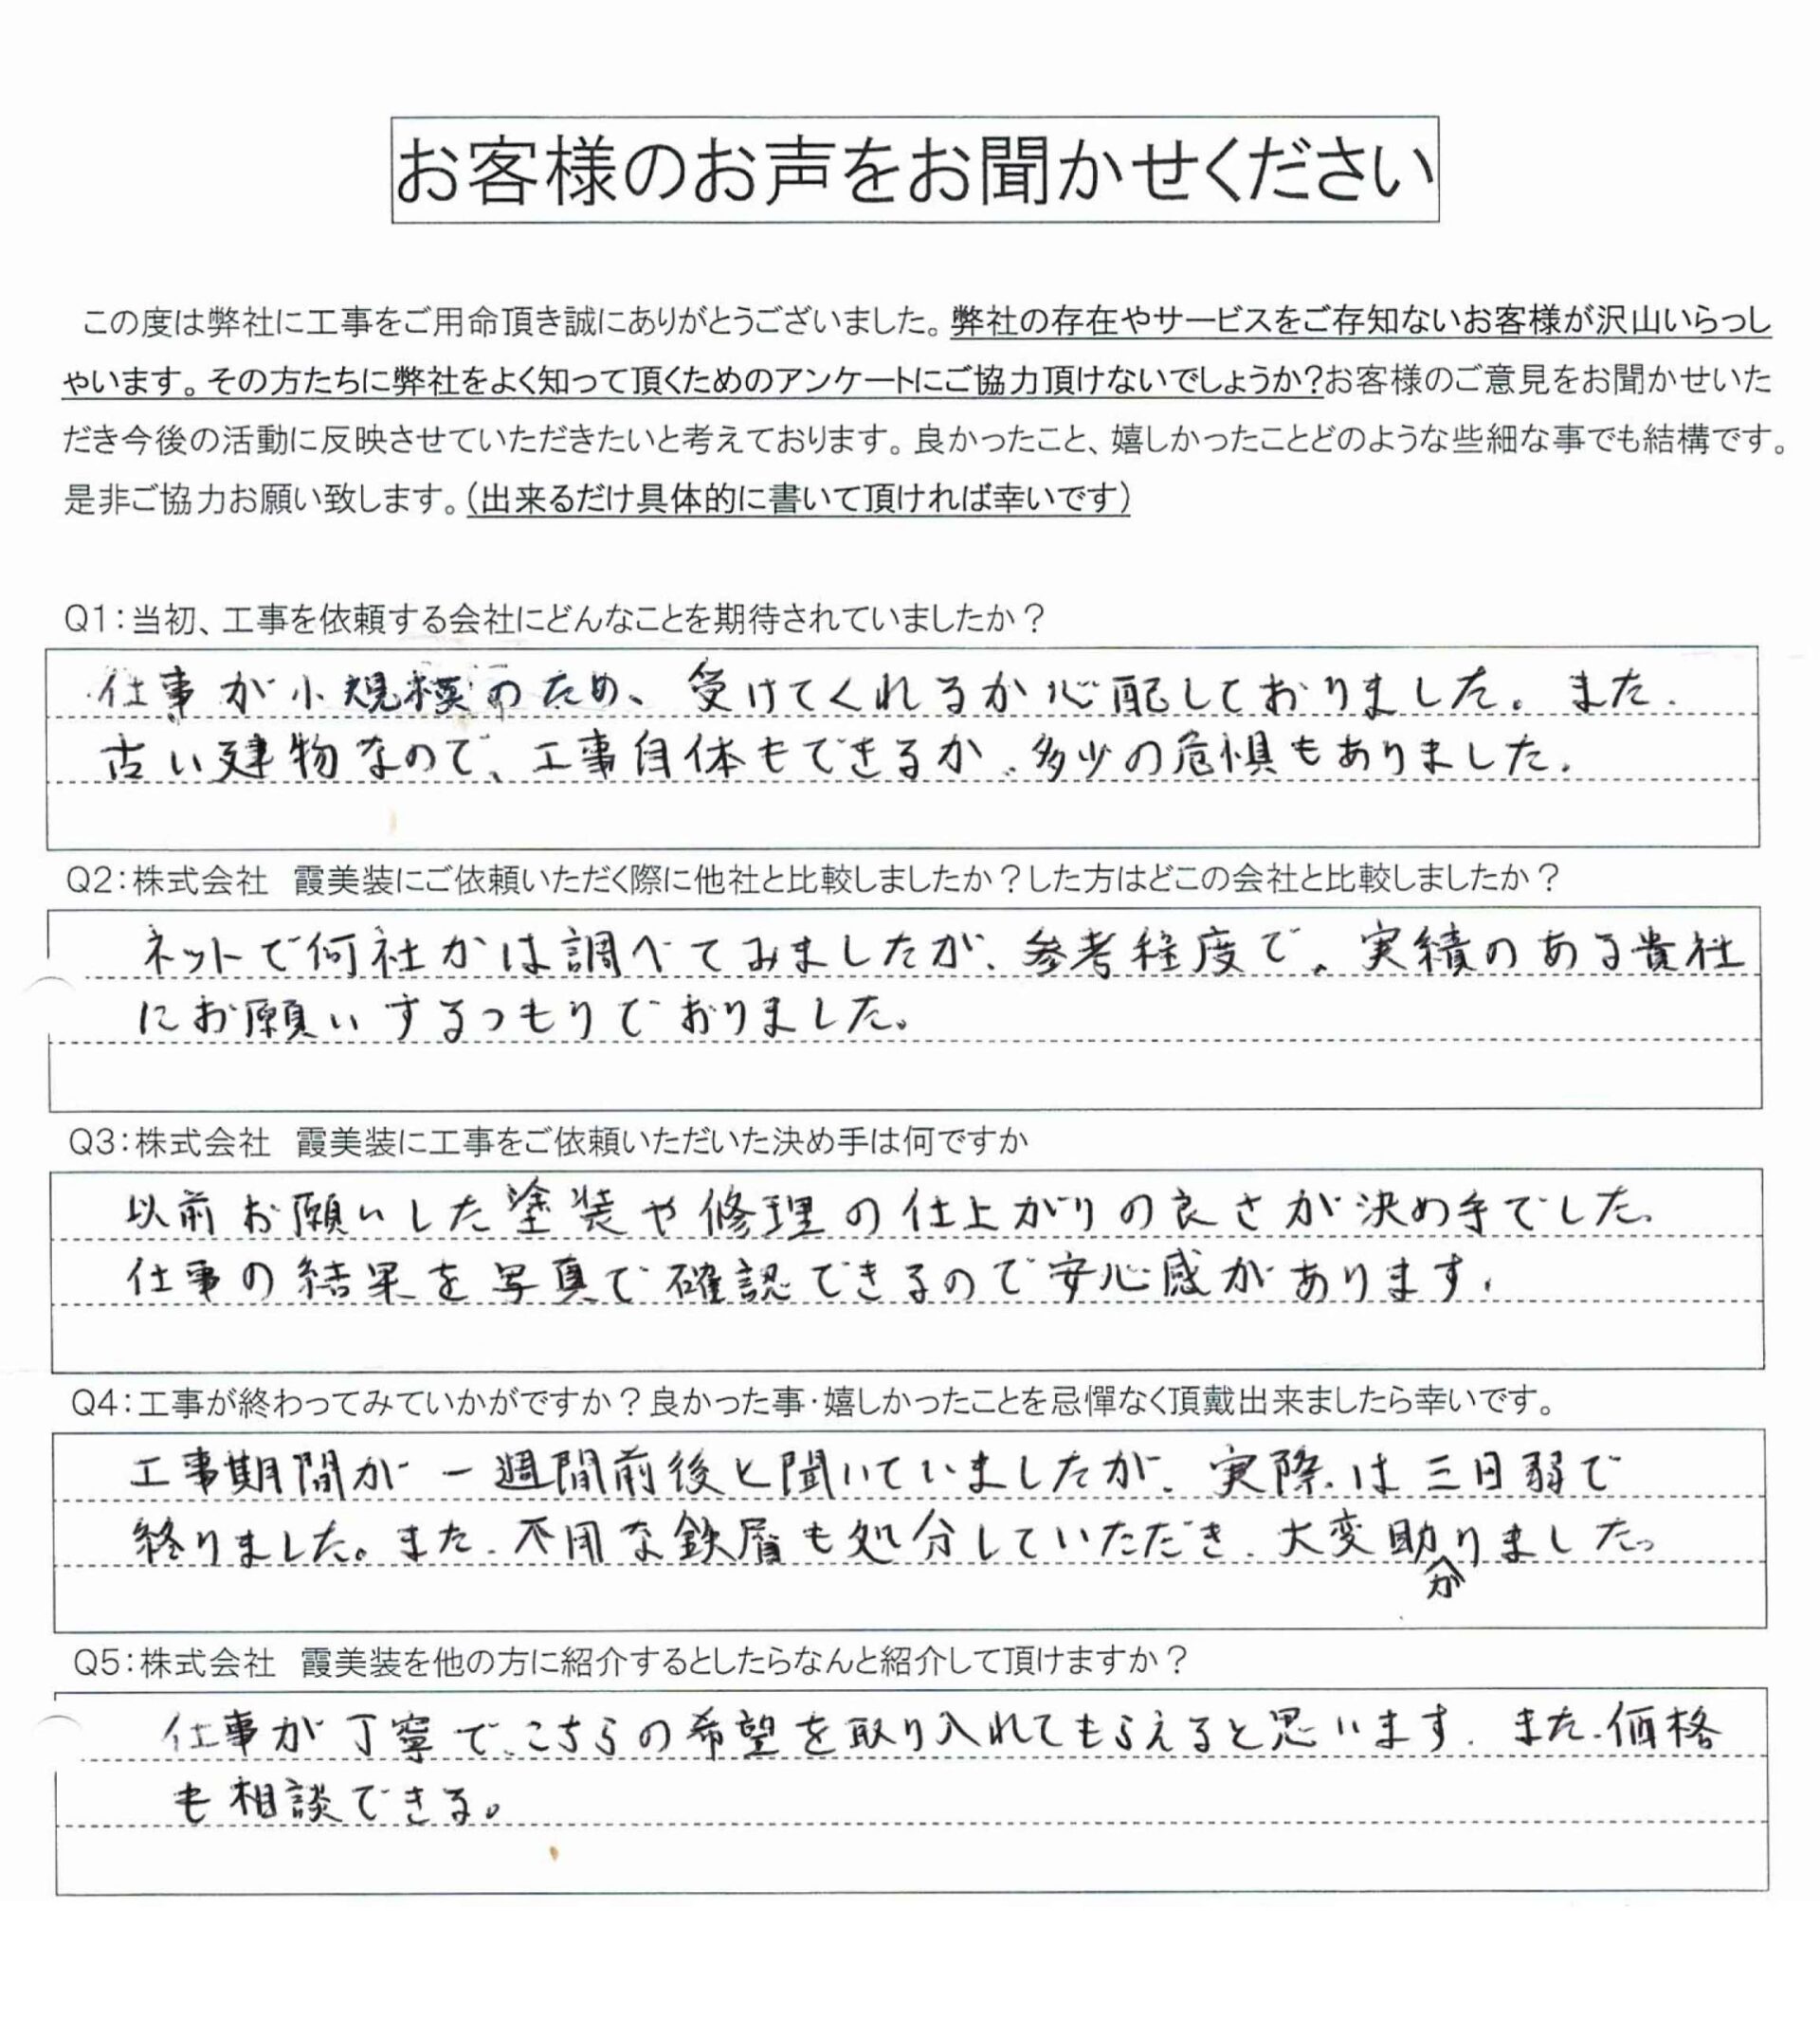 お客様のお声をお聞かせください
この度は弊社に工事をご用命頂き誠にありがとうございました。弊社の存在やサービスをご存知ないお客様が沢山いらっし
ゃいます。その方たちに弊社をよく知って頂くためのアンケートにご協力頂けないでしょうか?お客様のご意見をお聞かせいた
だき今後の活動に反映させていただきたいと考えております。良かったこと、嬉しかったことどのような些細な事でも結構です。
是非ご協力お願い致します。(出来るだけ具体的に書いて頂ければ幸いです)
Q1:当初、工事を依頼する会社にどんなことを期待されていましたか?
仕事が小規模のため、受けてくれるか心配しておりました。また、
古い建物なので、工事自体もできるか、多少の危惧もありました。
Q2:株式会社 霞美装にご依頼いただく際に他社と比較しましたか?した方はどこの会社と比較しましたか?
ネットで何社かは調べてみましたが、参考程度で、実績のある貴社
にお願いするつもりでおりました。
Q3:株式会社 霞美装に工事をご依頼いただいた決め手は何ですか
以前お願いした塗装や修理の仕上がりの良さが決め手でした。
仕事の結果を写真で確認できるので安心感があります。
Q4:工事が終わってみていかがですか?良かった事・嬉しかったことを忌憚なく頂戴出来ましたら幸いです。
工事期間が一週間前後と聞いていましたが、実際は三日弱で
終りました。また、不用な鉄屑も処分していただき、大変助かりました。
Q5:株式会社 霞美装を他の方に紹介するとしたらなんと紹介して頂けますか?
仕事が丁寧で、こちらの希望を取り入れてもらえると思います。また、価格
も相談できる。